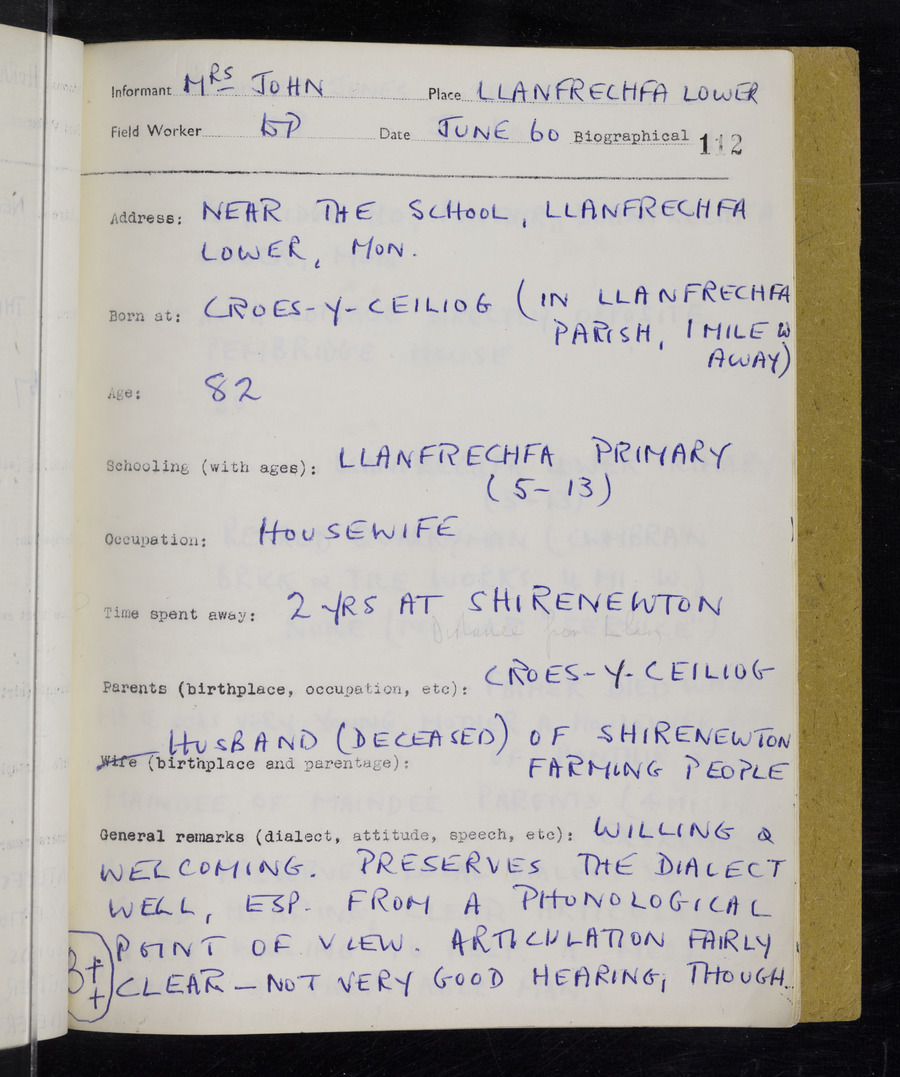 Informant MRS JOHN Place LLANFRECHFA LOWER
Field Worker DP Date JUNE 60 Biographical 112
Address: NEAR THE SCHOOL, LLANFRECHFA
LOWER, MON.
Born at: CROES-Y-CEILIOG (IN LLANFRECHFA
PARISH, 1 MILE W
AWAY)
Age: 82
Schooling (with ages): LLANFRECHFA PRIMARY
(5-13)
Occupation: HOUSEWIFE
Time spent away: 2 YRS AT SHIRENEWTON
Distance from
Parents (birthplace, occupation, etc): CROES-Y-CEILIOG
HUSBAND (DECEASED) OF SHIRENEWTON
Wife (birthplace and parentage): FARMING PEOPLE
General remarks (dialect, attitude, speech, etc): WILLING &
WELCOMING. PRESERVES THE DIALECT
WELL, ESP. FROM A PHONOLOGICAL
POINT OF VIEW. ARTICULATION FAIRLY
CLEAR – NOT VERY GOOD HEARING, THOUGH.
B++